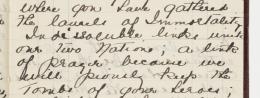 where you have gathered
the laurels of Immortality
Indissoluble links unite
our two Nations; a link
of prayer because we
will piously keep the
Tombs of your heroes;